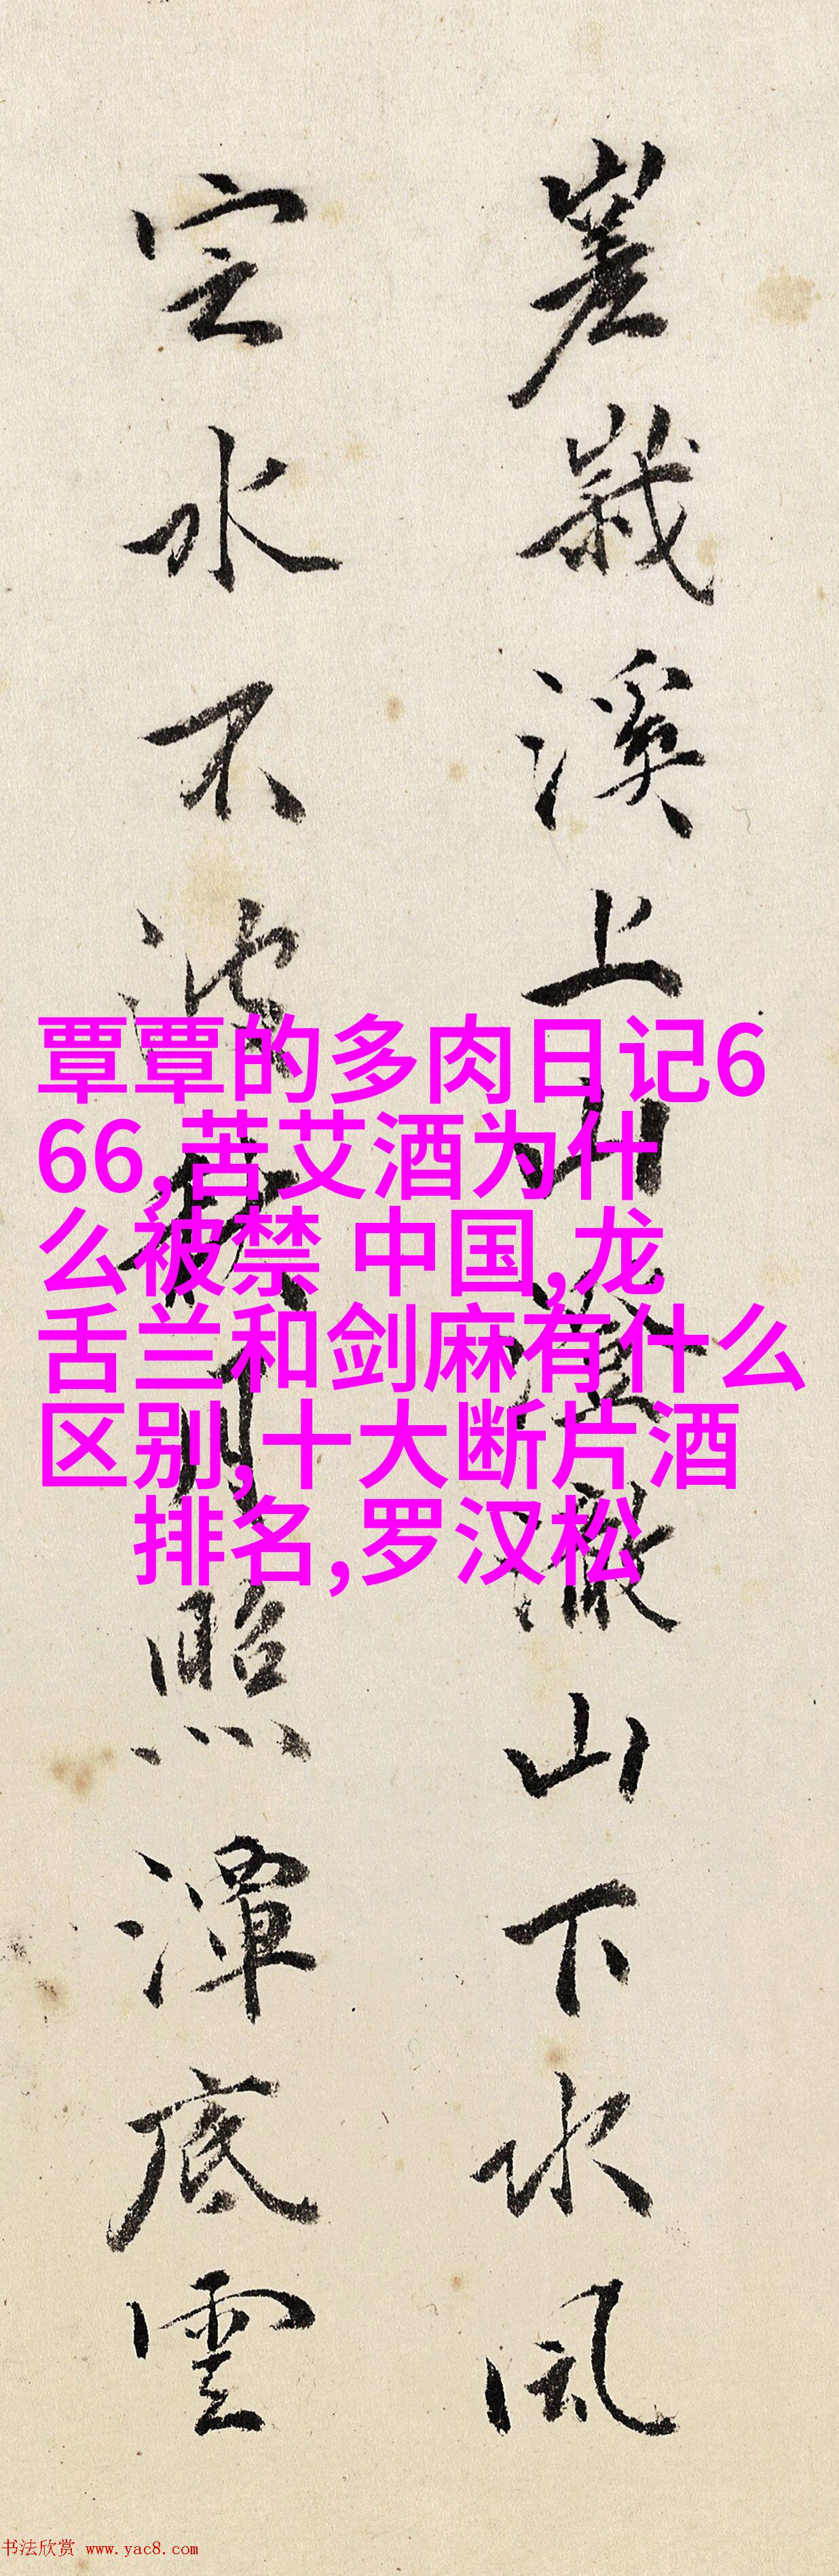 嵳峩溪上山澄澈山下水風
定水不波秋月照潭底雲
覃覃的多肉日记6
66,苦艾酒为什
么被禁 中国,龙
舌兰和剑麻有什么
区别,十大断片酒
排名,罗汉松
书法欣赏 www.yac8.com